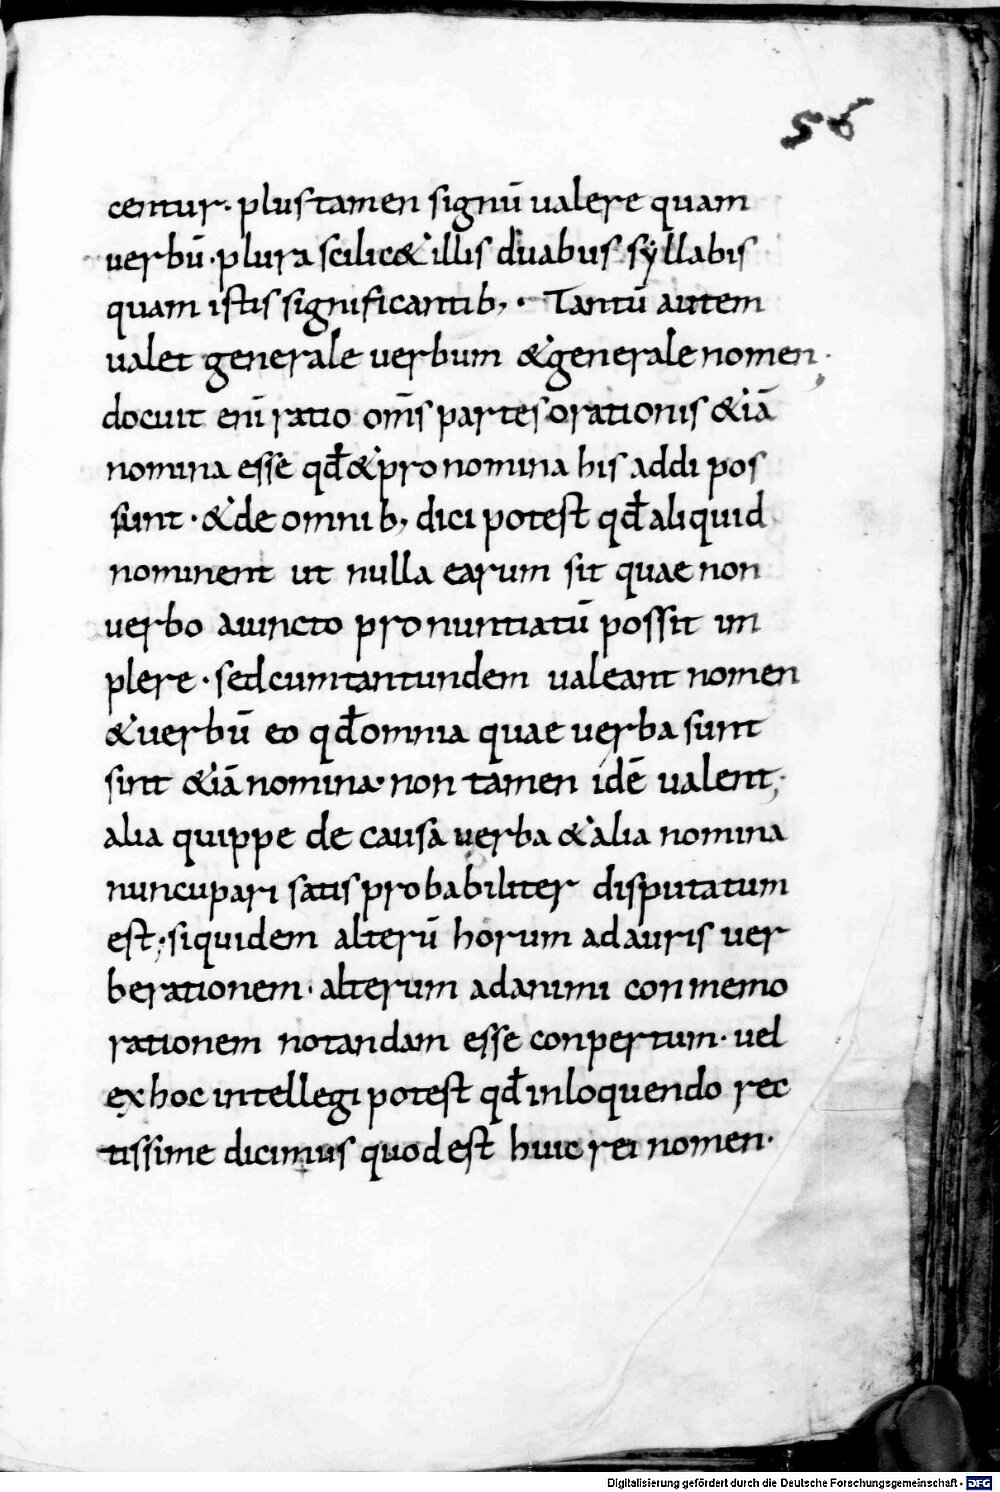 56
centur· plus tamen signū ualere quam
uerbū· plura scilic& illis duabus syllabis
quam istis significantib;· Tantū autem
ualet generale uerbum & generale nomen·
docuit enī ratio om̄s partes orationis &iā
nomina esse qd̄ & pro nomina his addi pos
sunt· & de omnib; dici potest qd̄ aliquid
nominent ut nulla earum sit quae non
uerbo aiuncto pronuntiatū possit im
plere· sed cum tantundem ualeant nomen
& uerbū eo qd̄ omnia quae uerba sunt
sint &iā nomina· non tamen idē ualent;
alia quippe de causa uerba & alia nomina
nuncupari satis probabiliter disputatum
est; siquidem alterū horum ad auris uer
berationem· alterum ad animi conmemo
rationem notandam esse conpertum· uel
ex hoc intellegi potest qd̄ in loquendo rec
tissime dicimus quod est huic rei nomen·
Digitalisierung gefördert durch die Deutsche Forschungsgemeinschaft - DFG